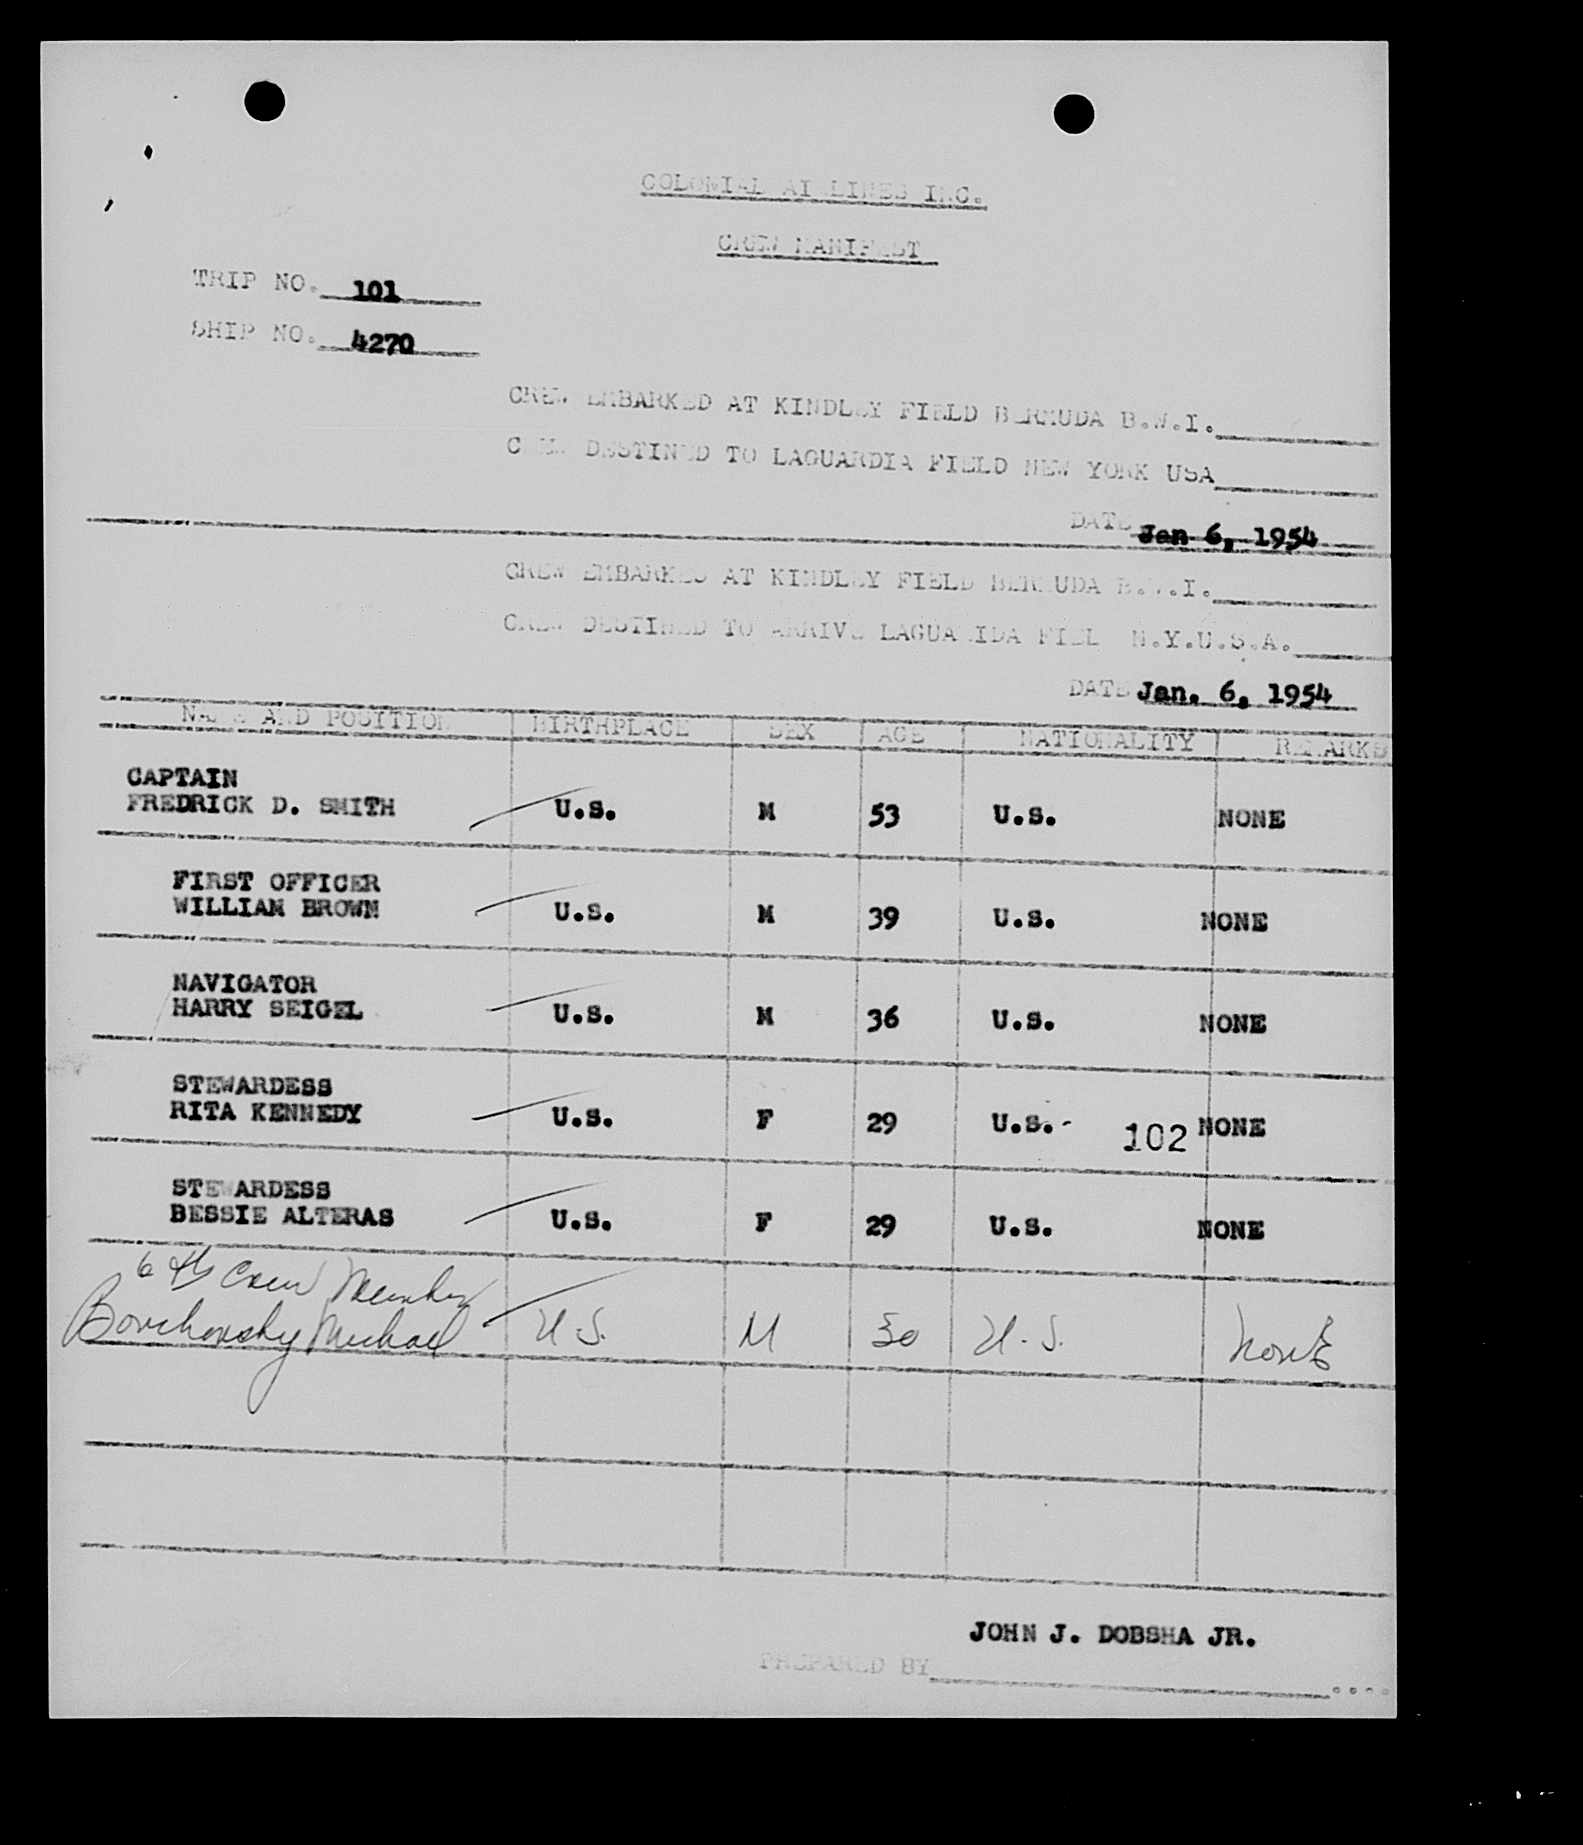 COLONIAL AIRLINES INC.
CREW MANIFEST
TRIP NO. 101
SHIP NO. 4270
CREW EMBARKED AT KINDLEY FIELD BERMUDA B.W.I.
CREW DESTINED TO LAGUARDIA FIELD NEW YORK USA
DATE Jan 6, 1954
CREW EMBARKED AT KINDLEY FIELD BERMUDA B.W.I.
CREW DESTINED TO ARRIVE LAGUARIDA FIELD N.Y.U.S.A.
DATE Jan. 6, 1954
NAME AND POSITION BIRTHPLACE SEX AGE NATIONALITY REMARKS
CAPTAIN
FREDRICK D. SMITH U.S. M 53 U.S. NONE
FIRST OFFICER
WILLIAM BROWN U.S. M 39 U.S. NONE
NAVIGATOR
HARRY SEIGEL U.S. M 36 U.S. NONE
STEWARDESS
RITA KENNEDY U.S. F 29 U.S. 102 NONE
STEWARDESS
BESSIE ALTERAS U.S. F 29 U.S. NONE
6th Crew Member
Michael U.S. M 30 U.S. NONE
JOHN J. DOBSHA JR.
PREPARED BY